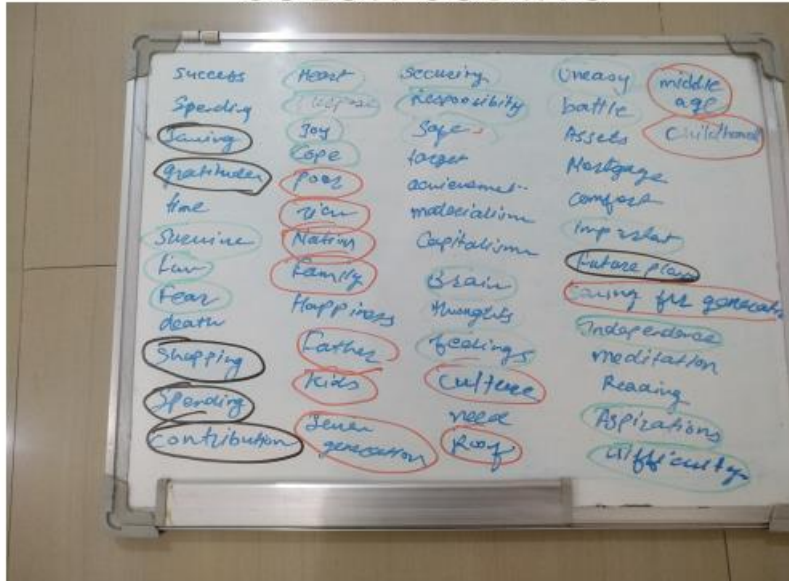 Success
Spending
Saving
gratitudes
time
Survive
Fear
death
Shopping
Spending
Contribution
Heart
Joy
Cope
Poor
rich
Nation
Family
Happiness
Father
Kids
Seven
generation
Security
Responsibity
Safe
target
achievement
materialism
Capitalism
Brain
thoughts
feelings
Culture
need
Roof
Uneasy
battle
Assets
Mortgage
comfort
Future plan
Saving for generati
Independence
meditation
Reading
Aspirations
difficulty
middle
age
Childhood